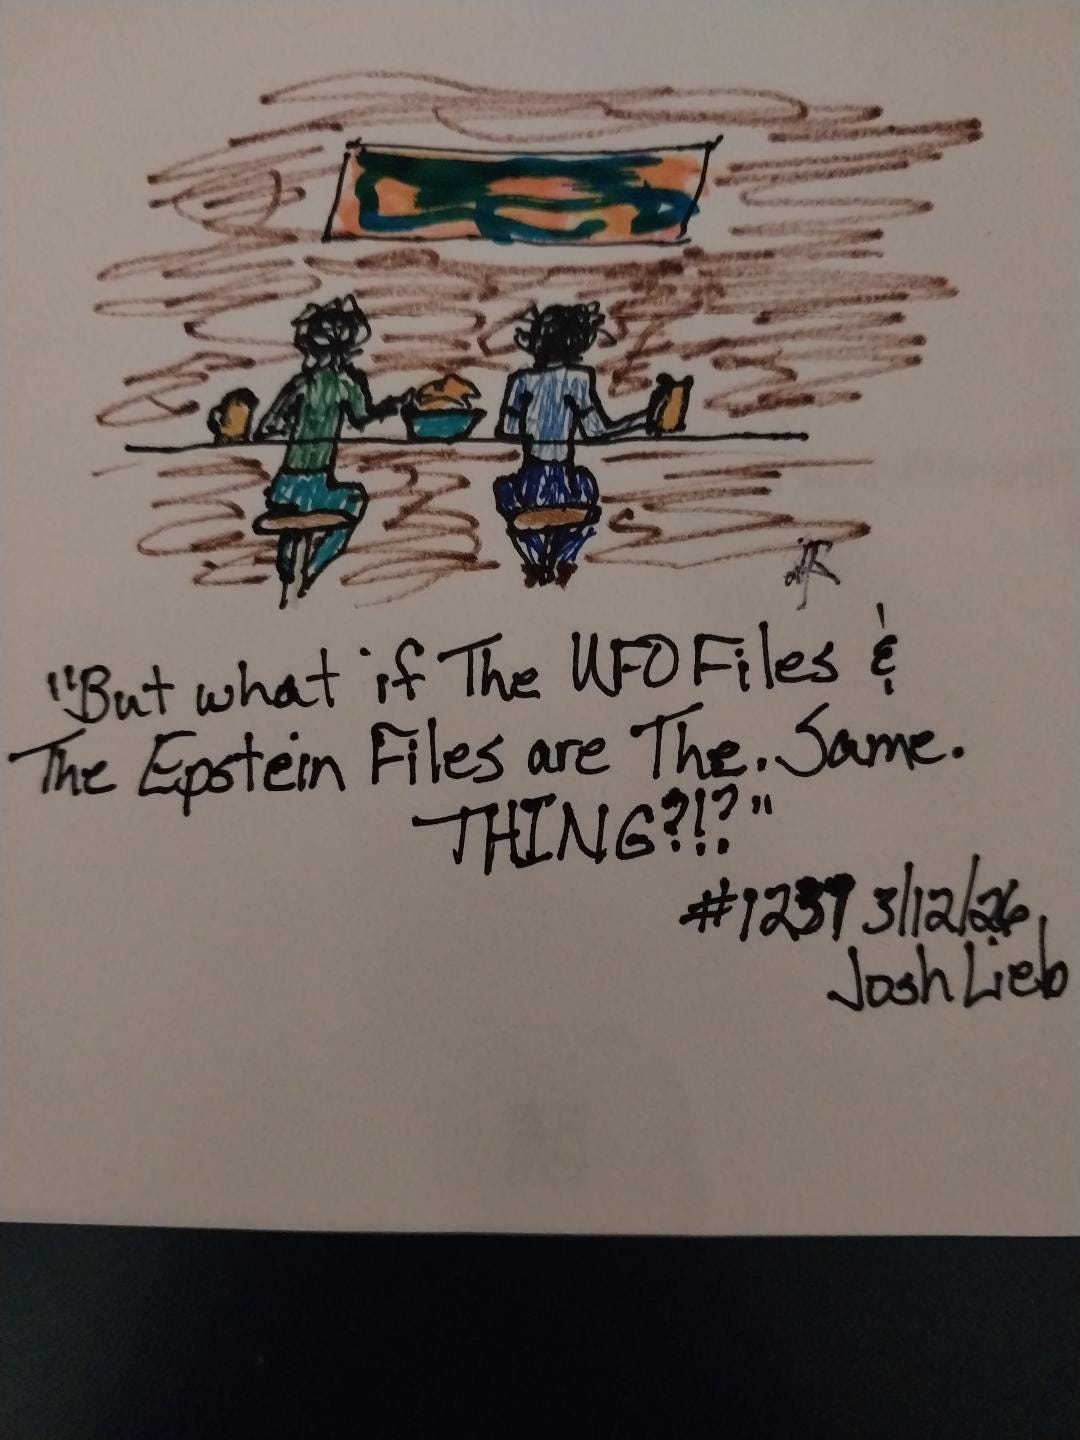 "But what if The UFO Files &
The Epstein Files are The. Same.
THING?!?"
#1239 3/12/26
Josh Lieb